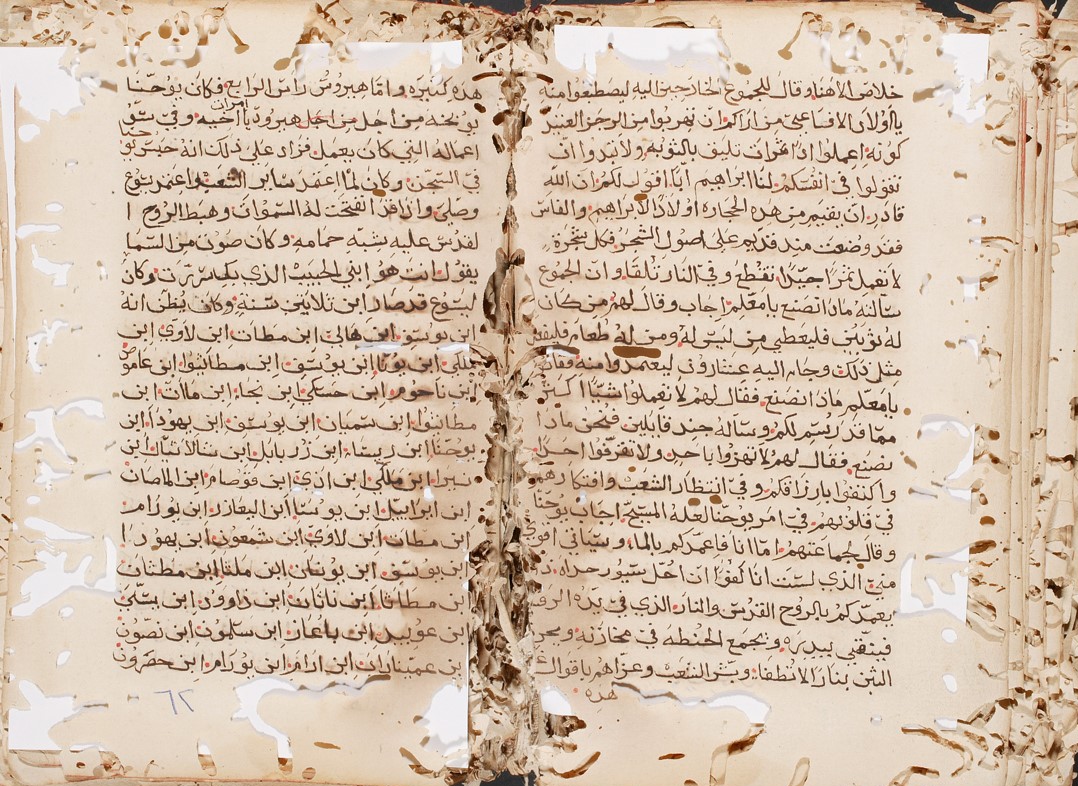 خلاص الاهنا وقال للجموع الخارجين اليه ليصطبغوا منه
يا اولاد الافاعي من اراكم ان تهربوا من الرجز العتيد
كونه اعملوا اذا ثمرات تليق بالتوبه ولا تبدوا ان
تقولوا في انفسكم لنا ابراهيم ابا اقول لكم ان الله
قادر ان يقيم من هذه الحجاره اولادا لابراهيم والفاس
فقد وضعت منذ قديم على اصول الشجر فكل شجره
لا تعمل ثمرا جيدا تقطع وفي النار تلقا وان الجموع
سالته ماذا نصنع يا معلم اجاب وقال لهم من كان
له ثوبين فليعطي من ليس له ومن له طعام
مثل ذلك وجاء اليه عشارون ليعتمدوا منه فقالوا
يا معلم ماذا نصنع فقال لهم لا تعملوا شيا اكثر
مما قد رسم لكم وساله جند قايلين فنحن ماذا
نصنع فقال لهم لا تهزوا باحد ولا تفرقوا احدا
واكتفوا بارزاقكم وفي انتظار الشعب وافتكارهم
في قلوبهم في امر يوحنا لعله المسيح اجاب يوحنا
وقال لجماعتهم اما انا فاعمدكم بالماء وسياتي
الذي لست انا كفوا ان احل سيور حداه
يعمدكم بالروح القدس والنار الذي في يده
فينقي بيدره ويجمع الحنطه في مخازنه
التبن بنار لا تطفا وبشر الشعب وعزاهم باقوال
هذه
هذه كثيره واما هيرودس راس الرابع فكان يوحنا
امراة
يوبخه من اجل هيروديا اخيه وفي
اعماله التي كان يعمل فزاد على ذلك انه حبس يوحنا
في السجن وكان لما اعتمد ساير الشعب واعتمد يسوع
وصلى واذ قد انفتحت له السموات وهبط الروح ا
لقدس عليه شبه حمامه وكان صوت من السما
يقول انت هو ابني الحبيب الذي بك سررت وكان
ليسوع قد صار ابن تلاتين سنه وكان يظن انه
ابن يوسف ابن هالي ابن مطات ابن لاوي ابن
ملكي ابن يونا ابن يوسف ابن مطاتيوا ابن عاموص
ابن ناحوم ابن حسلي ابن نجا ابن ماات ابن
مطاتيوا ابن سميان ابن يوسف ابن يهودا ابن
يوحنا ابن ريسا ابن زربابل ابن سالاتيال ابن
نيرا ابن ملكي ابن ادي ابن قوصام ابن الماصان
ابن
ابن مطات ابن لاوي ابن شمعون ابن يهودا
ابن يوسف ابن يونان ابن ملقا ابن مطتان
ابن مطاثا ابن ناثان ابن داوود ابن يسي
ابن عوبيد ابن باعاز ابن سلمون ابن نصون
ابن عميناداب ابن ارام ابن يورام ابن حصرون
٦٢